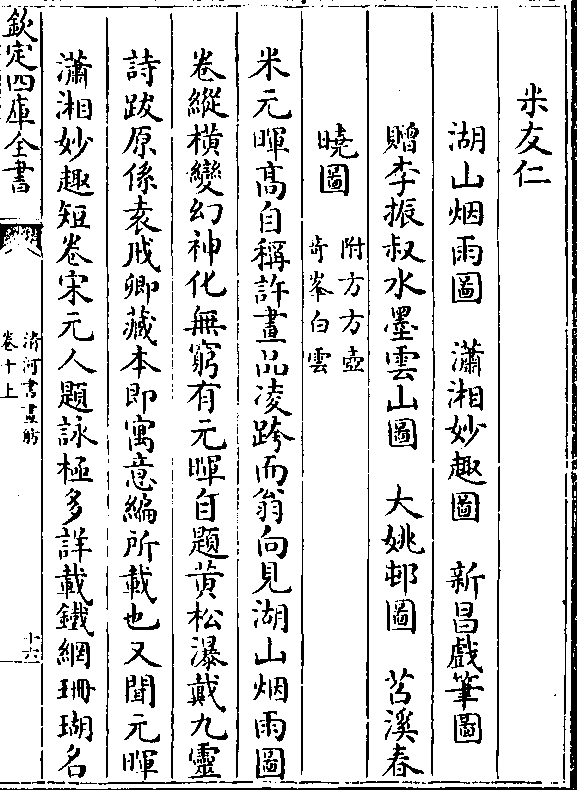 米友仁
湖山烟雨圖　瀟湘妙趣圖　新昌戲筆圖
贈李振叔水墨雲山圖　大姚邨圖　苕溪春
曉圖
附方方壺
奇峯白雲
米元暉高自稱許畫品凌跨而翁向見湖山烟雨圖
卷縱橫變幻神化無窮有元暉自題黄松瀑戴九靈
詩跋原係袁戕卿藏本即寓意編所載也又聞元暉
瀟湘妙趣短卷宋元人題詠極多詳載鐵網珊瑚名
欽定四庫全書
清河書畫舫
卷十上
十六